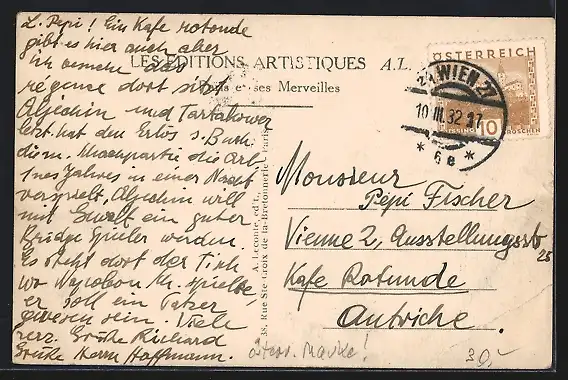 L. Pepi! Ein Kafe rotonde
gibt es hier auch aber
ich das
régence dort sitzt
Aljechin und Tartakower
letzt. hat den Erlös s. Buch
die m. partie die Art
1nes Jahres in einer Nacht
verspielt, Aljechin will
nur ein guter
Bridge Spieler werden.
Es steht dort der Tisch
wo Napoleon spielte
er soll ein Patzer
gewesen sein. Viele
herz. Grüße Richard
Grüße Herrn Hoffmann.
LES EDITIONS ARTISTIQUES A.L.
Paris et ses Merveilles
A. Leconte, edit., 38, Rue Ste-Croix de-la-Bretonnerie, Paris
ÖSTERREICH
10 GROSCHEN
WIEN 27
10.III.32.17
* 6e *
Monsieur
Pepi Fischer
Vienne 2, Ausstellungsstr
25
Kafe Rotunde
Autriche.
Marke!
30,-